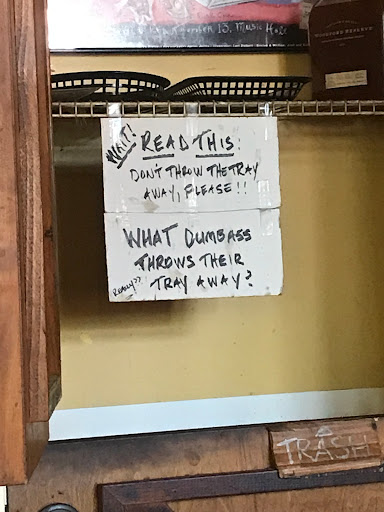 NOVEMBER 13. MUSIC HALL
WOODFORD RESERVE
WAIT! READ THIS:
DON'T THROW THE TRAY
AWAY, PLEASE!!
WHAT DUMBASS
THROWS THEIR
REALLY?? TRAY AWAY?
TRASH